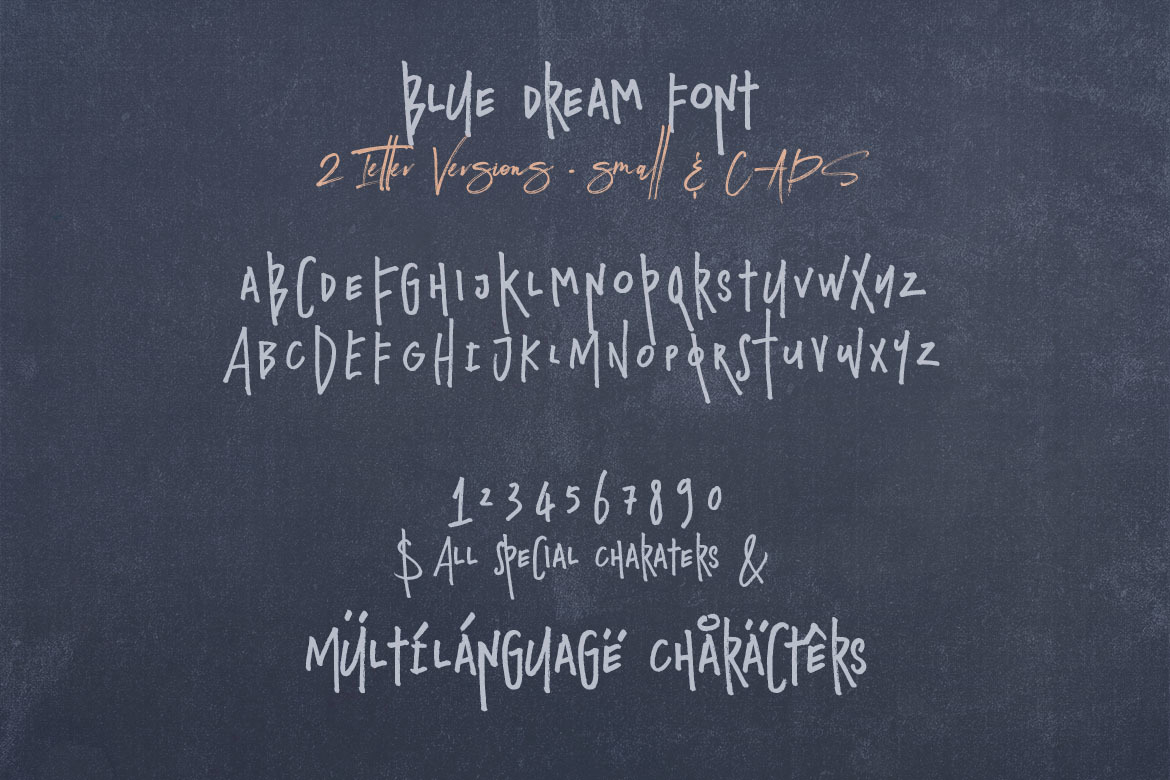 BLUE DREAM FONT
2 letter Versions . small & CAPS
ABCDEFGHIJKLMNOPQRSTUVWXYZ
ABCDEFGHIJKLMNOPQRSTUVWXYZ
1234567890
$ ALL SPECIAL CHARATERS &
MÜLTÍLÁNGUAGË CHÅRÄCTÊRS